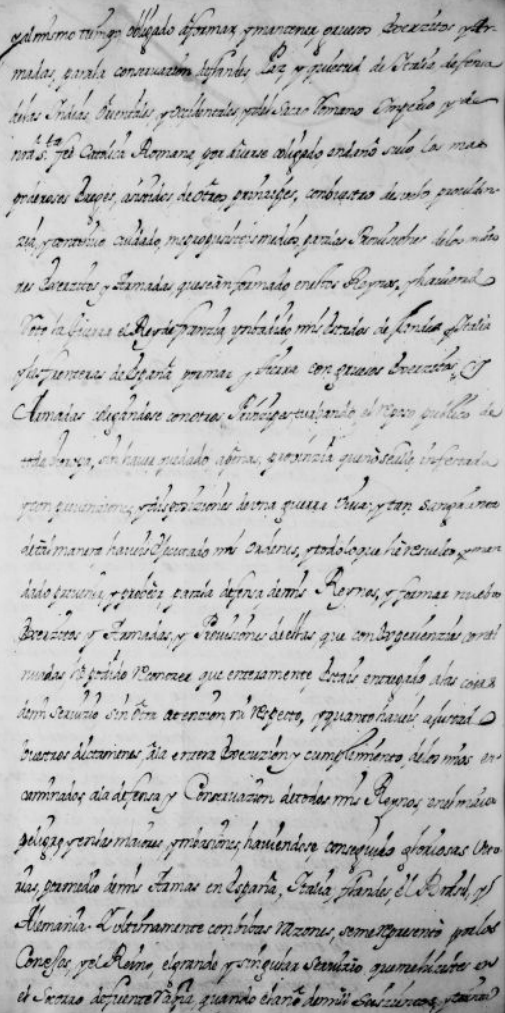 y al mismo tiempo obligado a formar, y mantener gruesos Exercitos y Ar-
madas, para la conservacion de flandes, Paz y quietud de Italia defensa
de las Indias, Orientales, y occidentales, y del Sacro Romano Imperio y de
nrã s.ta fee Catolica Romana, por averse coligado en daño suyo los mas
poderosos Reyes, asistidos de otros principes, con buestro desvelo
y continuo cuidado, me propusisteis medios, para las Prouisiones de los
Exercitos y Armadas que se an formado en estos Reynos, y haviend
Roto la Guerra el Rey de francia, ymbadido mis Estados de flandes y Italia
y las fronteras de España por mar y tierra con gruesos Exercitos, y
Armadas coligandose con otros Principes turbando el reposo publico de
toda Europa, sin haver quedado apenas, provincia que no se alle infestada
y con prevenciones y disposiciones de una guerra viva y tan sangrienta
de tal manera haveis executado mis ordenes, y todo lo que he resuelto, y man
dado prevenir, y proveer, para la defensa de mis Reynos, y formar nuebos
Exercitos y Armadas, y Provisiones de ellas, que con experiencias conti
nuadas he podido reconozer que enteramente estais entregado a las cosas
de mi servicio sin otra atencion ni respecto, y quanto haveis ajustad
buestros dictamenes, a la entera execuzion y cumplimiento, de los mios en-
caminados, a la defensa y Conservazion de todos mis Reynos, en el mayor
peligro y en las maiores, ymbasiones, haviendose conseguido gloriosas vito
rias, por medio de mis Armas en España, Italia, flandes, el Brasil, y
Alemania. Y ultimamente con bibas razones, se me represento por los
Consejos, y el Reino, el grande y singular servizio, que me hizisteis en
el Socorro de fuente Rabia, quando el año de mill Seiscientos, y treinta